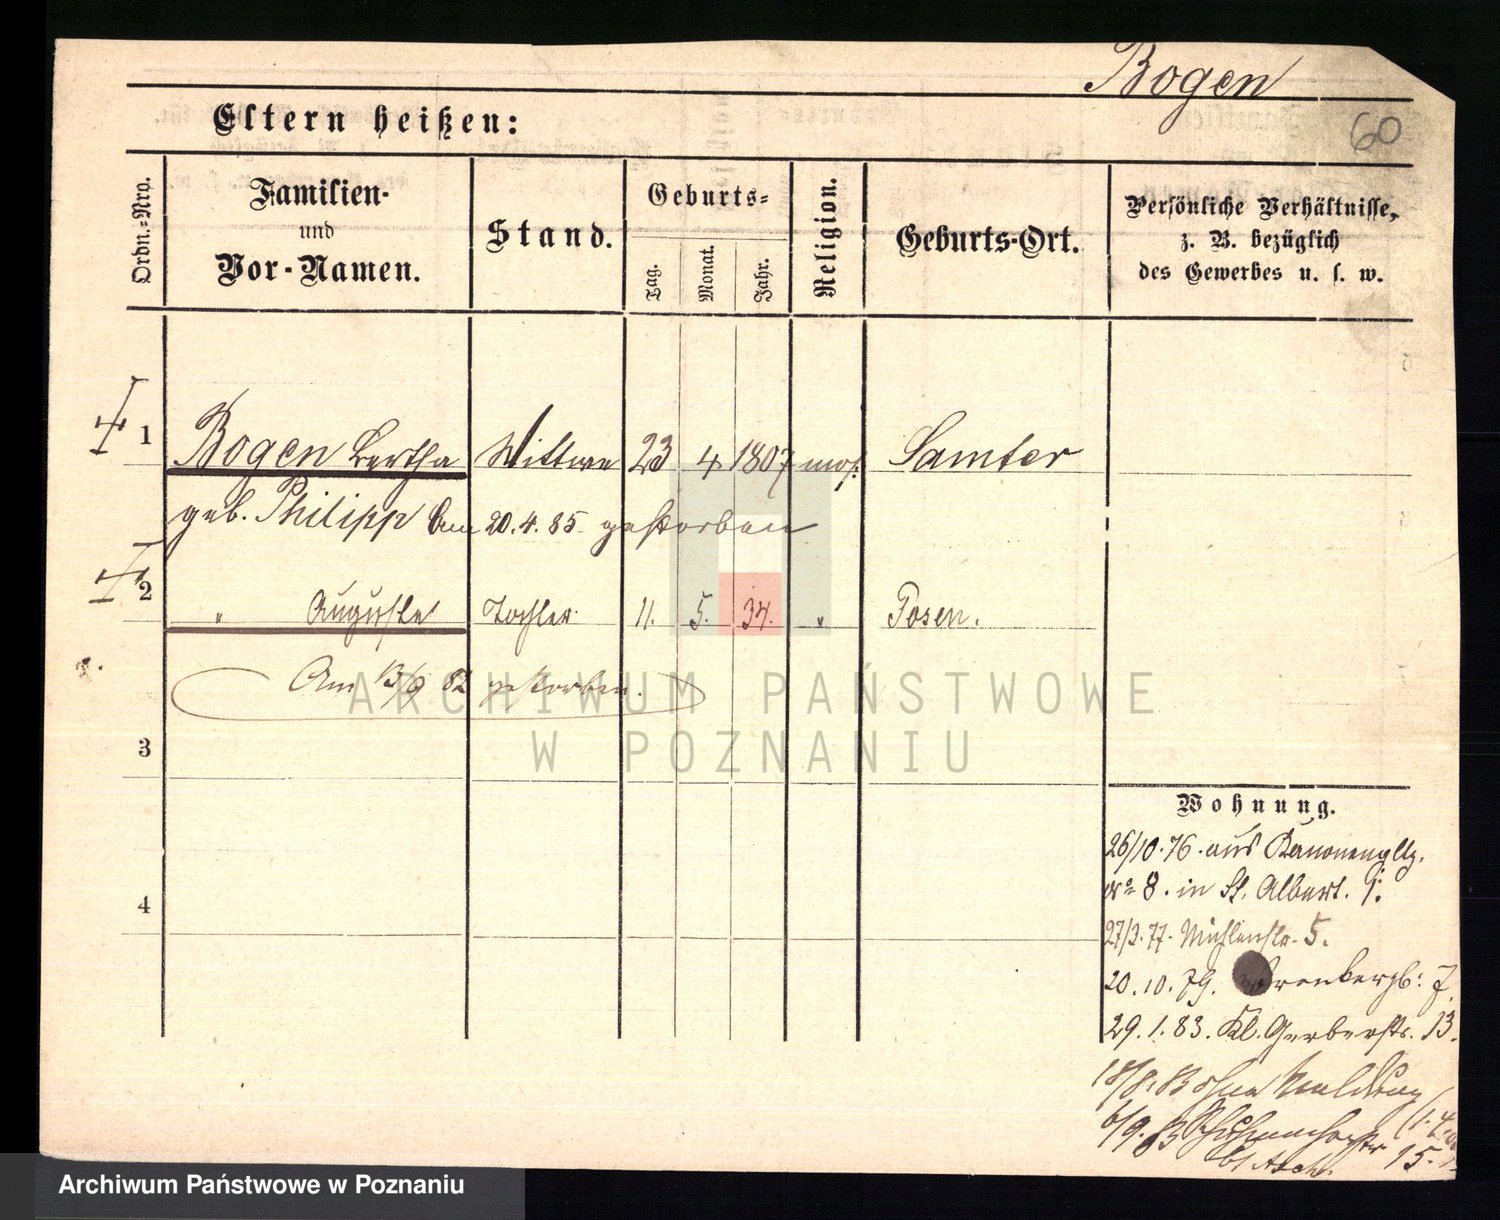 Bogen
60
Eltern heißen:
Ordn.=Nro.
Familien-
und
Vor-Namen.
Stand.
Geburts=
Tag.
Monat.
Jahr.
Religion.
Geburts-Ort.
Persönliche Verhältnisse,
z. B. bezüglich
des Gewerbes u. s. w.
1 Bogen Bertha Wittwe 23 4 1807 mos. Samter
geb. Philipp Am 20.4.85 gestorben
2 " Auguste Tochter 11. 5. 34. " Posen.
Am 13/9 82 gestorben.
3
4
Wohnung.
26/10.76. aus Kanonenpltz.
No 8. in St. Albert. 1.
27/3.77. Mühlenstr. 5.
20.10.79. Kronkergb: 7.
29.1.83. Kl. Gerberstr. 13.
18/8.83 ohne Meldung
6/9.83 15.
ARCHIWUM PAŃSTWOWE
W POZNANIU
Archiwum Państwowe w Poznaniu